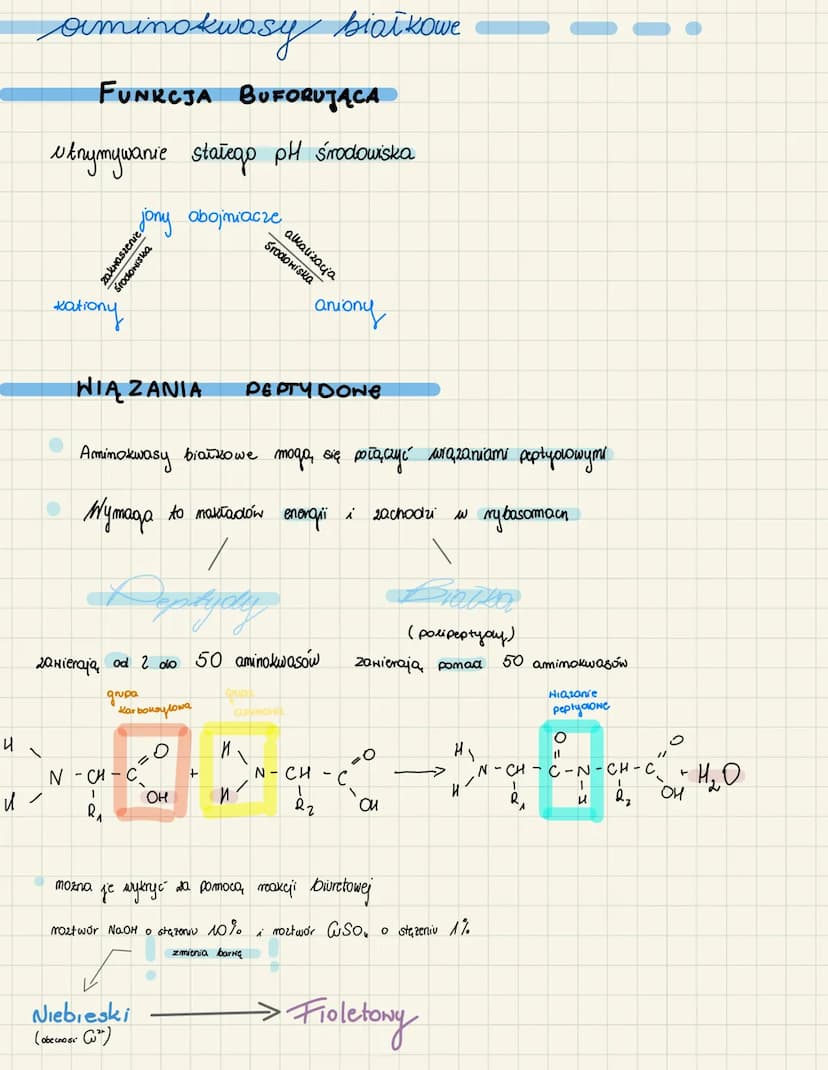 aminokwasy białkowe
FUNKCJA BUFORUJĄCA
utrzymywanie stałego pH środowiska
jony obojniacze
zakwaszenie środowiska
alkalizacja środowiska
kationy
aniony
WIĄZANIA PEPTYDOWE
Aminokwasy białkowe mogą się połączyć wiązaniami peptydowymi
Wymaga to nakładów energii i zachodzi w rybosomach
Peptydy
Białka
(polipeptydy)
zawierają od 2 do 50 aminokwasów
zawierają ponad 50 aminokwasów
grupa karboksylowa
grupa aminowa
Wiązanie peptydowe
H H N - CH - C O OH R₁ + H H N - CH - C O OH R₂ → H H N - CH - C - N - CH - C O OH R₁ O H R₂ + H₂O
można je wykryć za pomocą reakcji biuretowej
roztwór NaOH o stężeniu 10% i roztwór CuSO₄ o stężeniu 1%
! zmienia barwę !
Niebieski → Fioletowy
(obecność Cu²⁺)